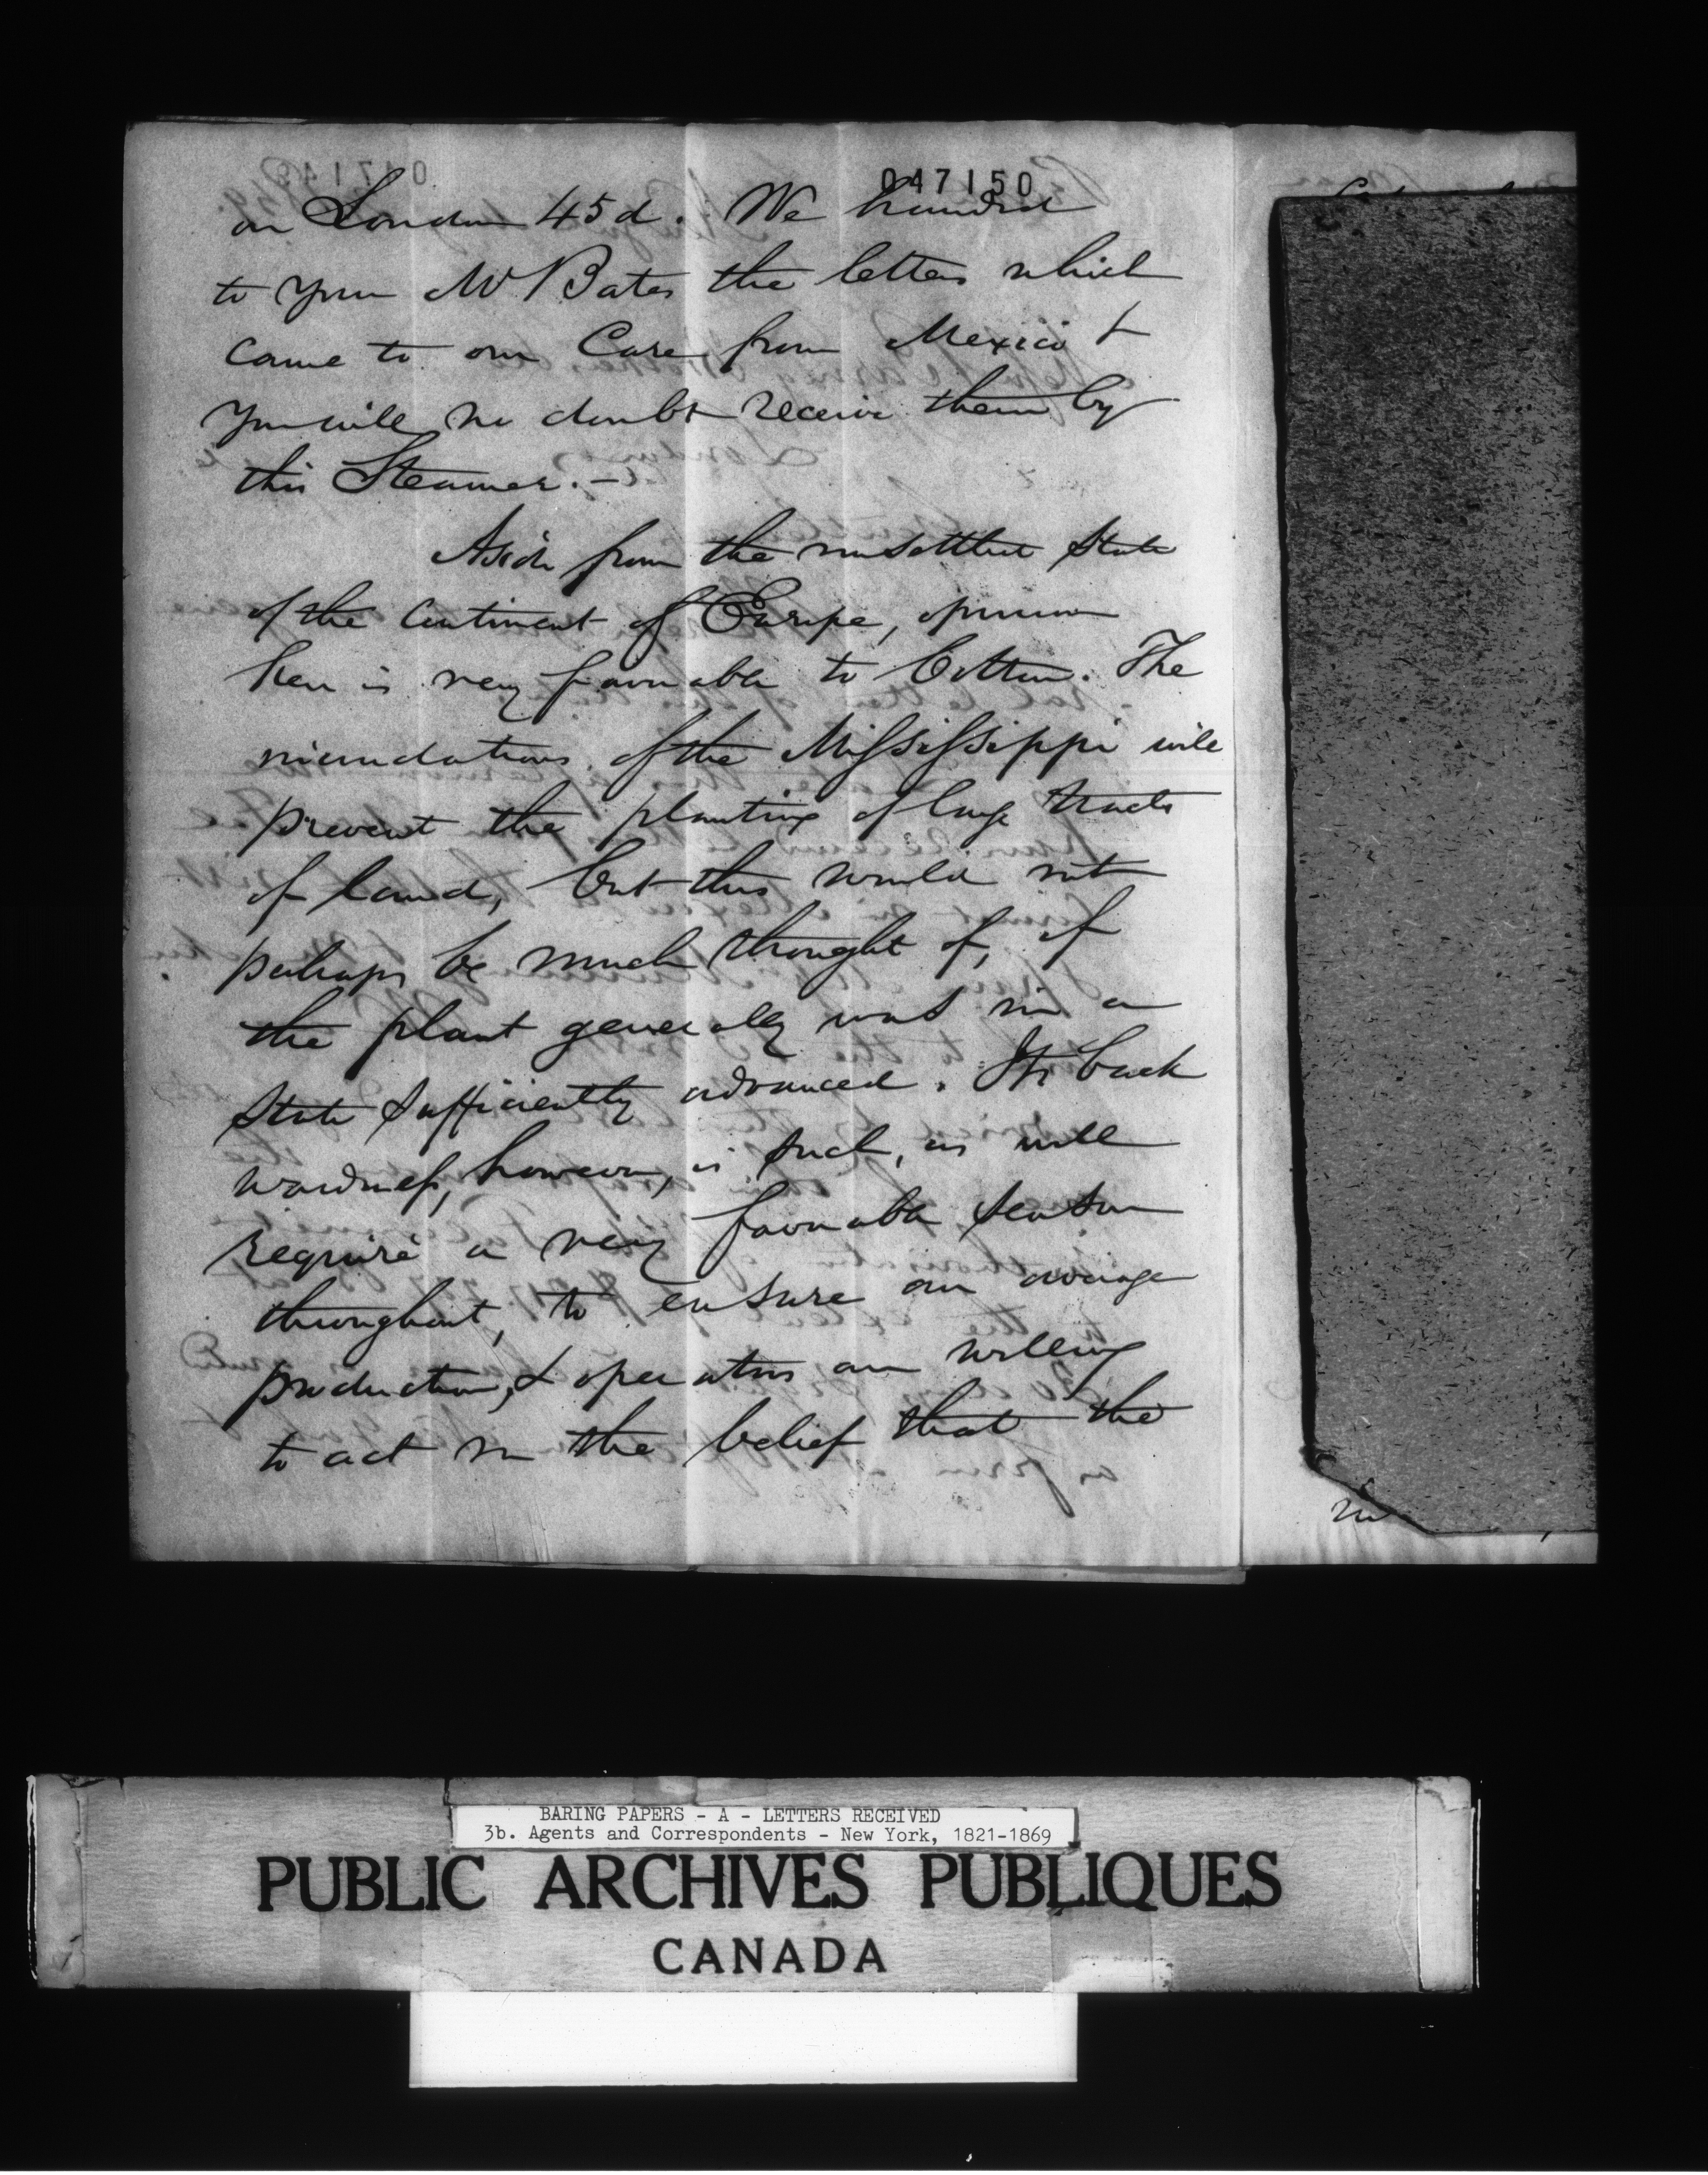 047150
on London 45 d. We handed
to your Mr Bates the letters which
came to our Care from Mexico &
you will no doubt receive them by
this Steamer. –
Aside from the unsettled state
of the Continent of Europe, opinion
here is very favorable to Cotton. The
inundations of the Mississippi will
prevent the planting of large tracts
of land, but this would not
perhaps be much thought of, if
the plant generally was in a
state sufficiently advanced. Its back
wardness, however, is such, as will
require a very favorable season
throughout, to ensure an average
production, & operators are willing
to act on the belief that the
BARING PAPERS - A - LETTERS RECEIVED
3b. Agents and Correspondents - New York, 1821-1869
PUBLIC ARCHIVES PUBLIQUES
CANADA